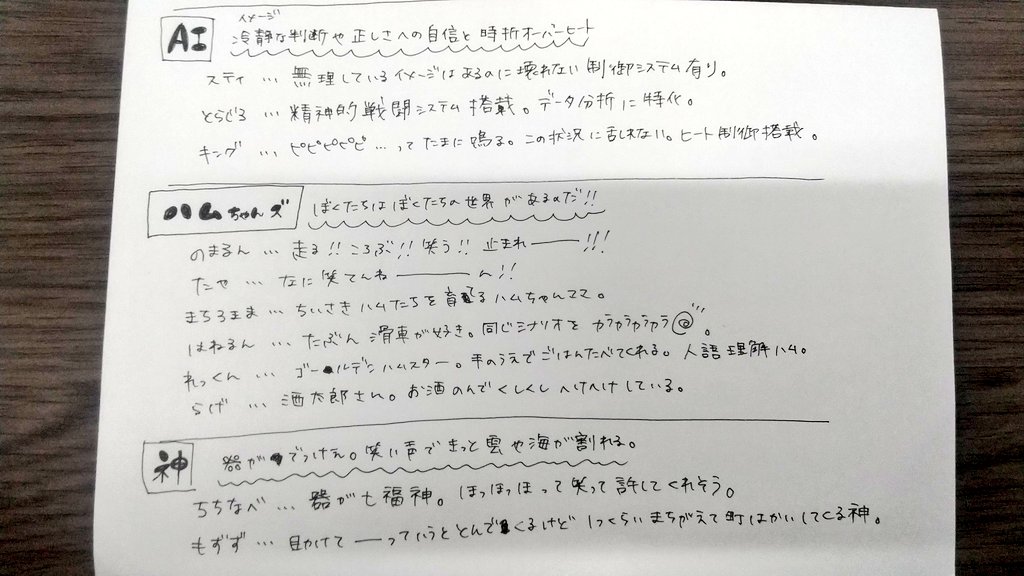 イメージ
AI 冷静な判断や正しさへの自信と時折オーバーヒート
スティ … 無理しているイメージはあるのに壊れない制御システム有り。
とらじろ … 精神的戦闘システム搭載。データ分析に特化。
キング … ピピピピピ…ってたまに鳴る。この状況に苦しれない。ヒート制御搭載。
ハムちゃんズ ぼくたちはぼくたちの世界があるのだ!!
のまるん … 走る!! ころぶ!! 笑う!! 止まれ――!!!
たや … なに笑てんね――――ん!!
まちろまま … ちいさきハムたちを育てるハムちゃんママ。
はねるん … たぶん滑車が好き。同じシナリオをカラカラカラカラ。
れっくん … ゴールデンハムスター。手のうえでごはんたべてくれる。人語理解ハム。
らげ … 酒太郎さん。お酒のんでくしくしへけへけしている。
神 器がでっけえ。笑い声できっと雲や海が割れる。
ちちなべ … 器が七福神。ほっほっほって笑って許してくれそう。
もずず … 助けて――っていうととんでくるけどしっくらいまちがえて町はかいしてくる神。